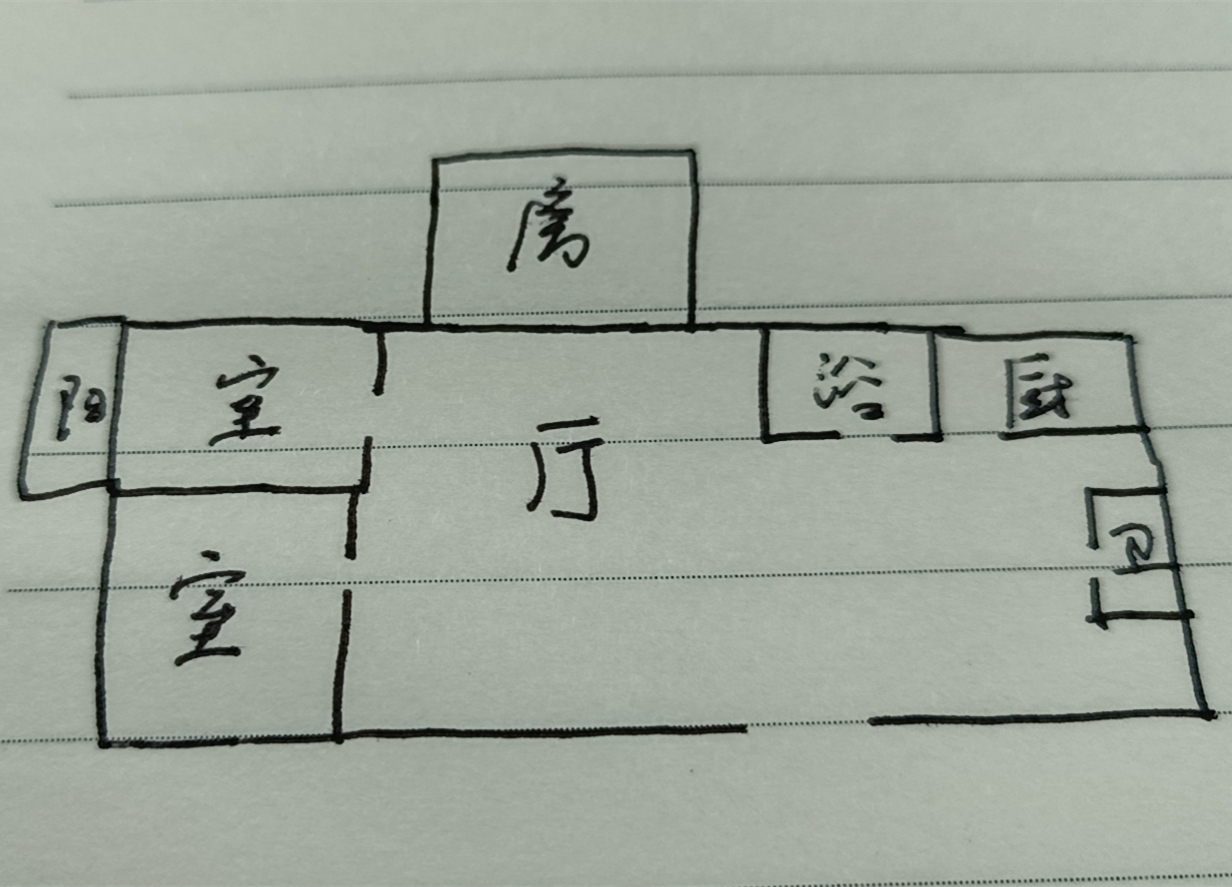 阳 室 浴 厨
厅
卫
室